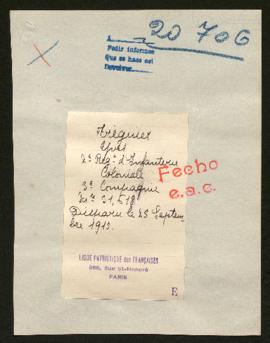 20706
A
Pedir informes
Que se hace asi
Devolver
Trégnier
Yves
2e Regt d'Infanterie
Coloniale
3e Compagnie
No 21,518
Disparu le 25 Septem
bre 1915.
Fecho
e.a.c.
LIGUE PATRIOTIQUE des FRANÇAISES
368, Rue St-Honoré
PARIS
E